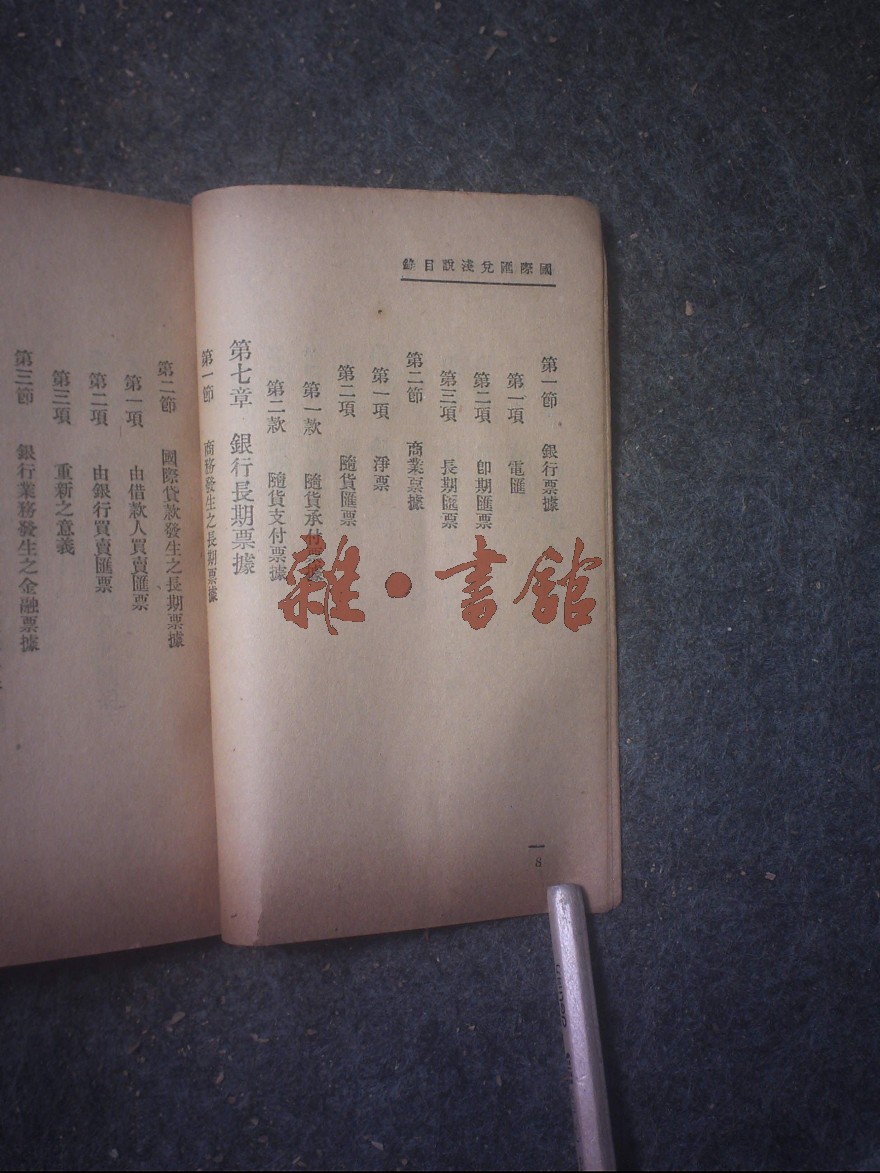 國際匯兌淺說目錄
第一節 銀行票據
第一項 電匯
第二項 卽期匯票
第三項 長期匯票
第二節 商業票據
第一項 淨票
第二項 隨貨匯票
第一款 隨貨承付票據
第二款 隨貨支付票據
第七章 銀行長期票據
第一節 商務發生之長期票據
第二節 國際貸款發生之長期票據
第一項 由借款人買賣匯票
第二項 由銀行買賣匯票
第三項 重新之意義
第三節 銀行業務發生之金融票據
8
雜·書館